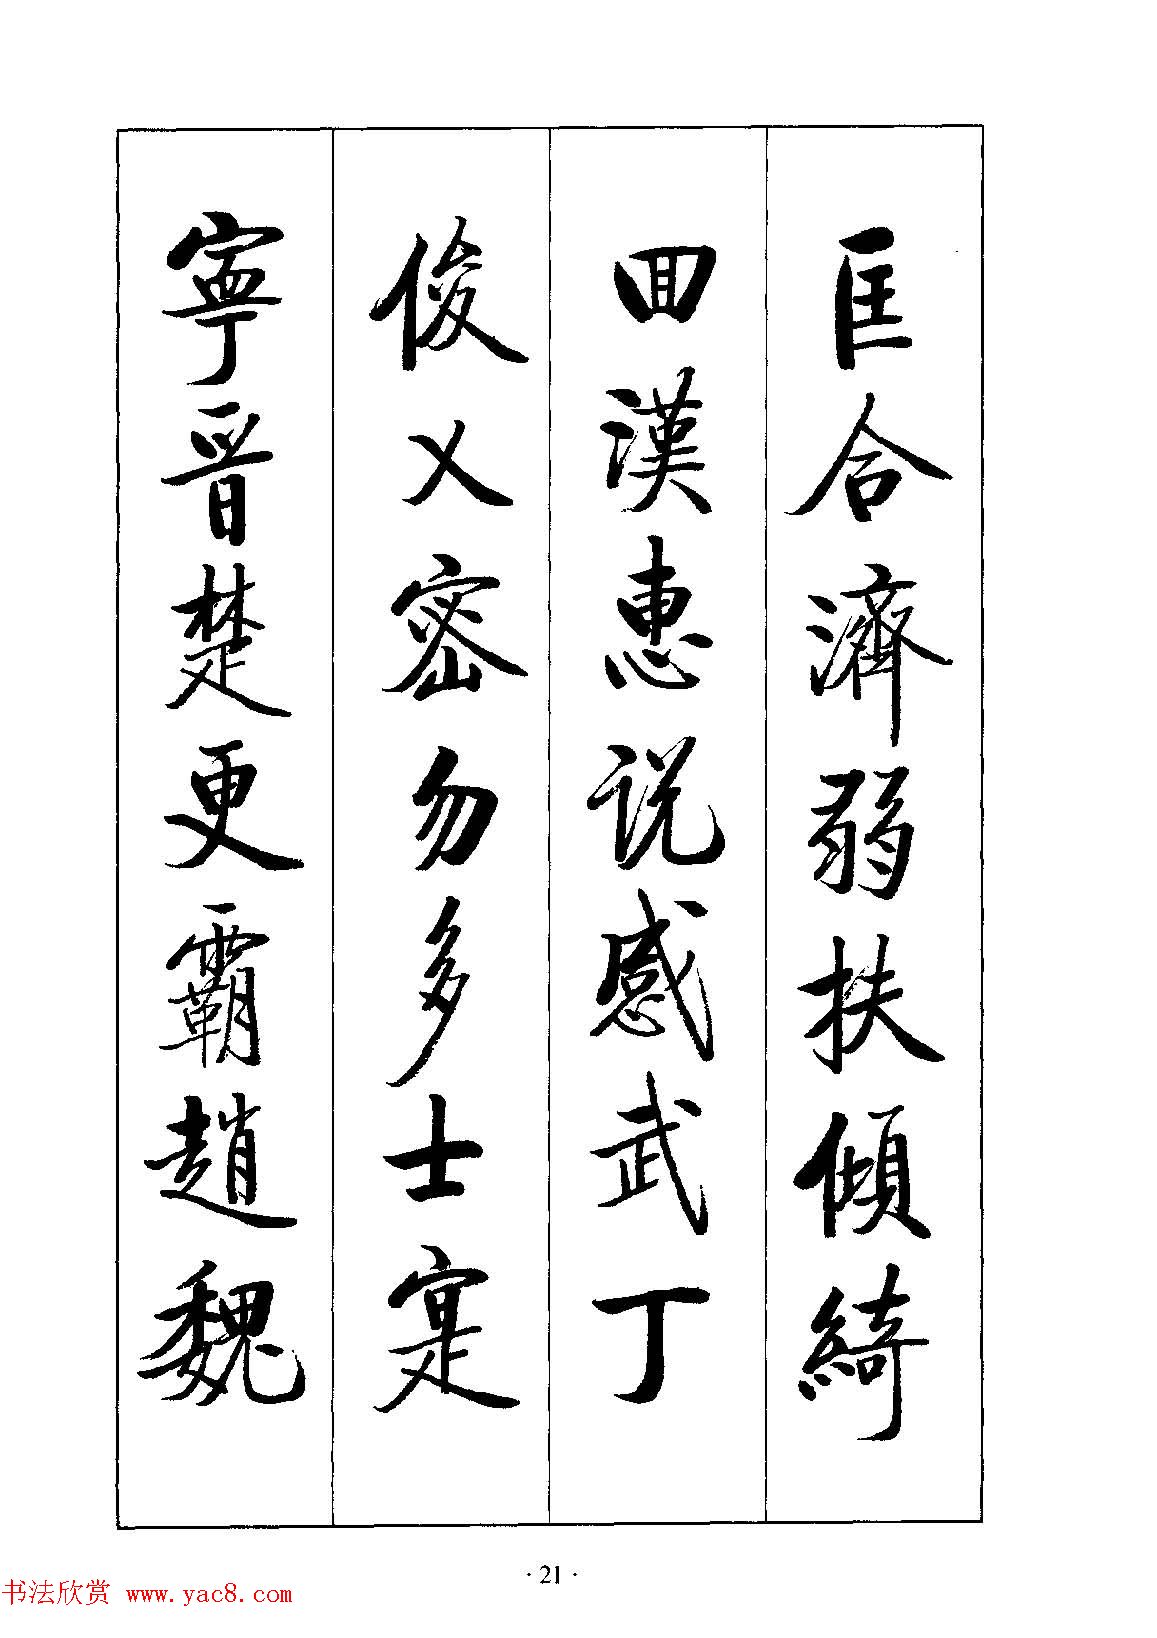 匡合濟弱扶傾綺
回漢惠说感武丁
俊乂密勿多士寔
寧晉楚更霸趙魏
·21·
书法欣赏 www.yac8.com